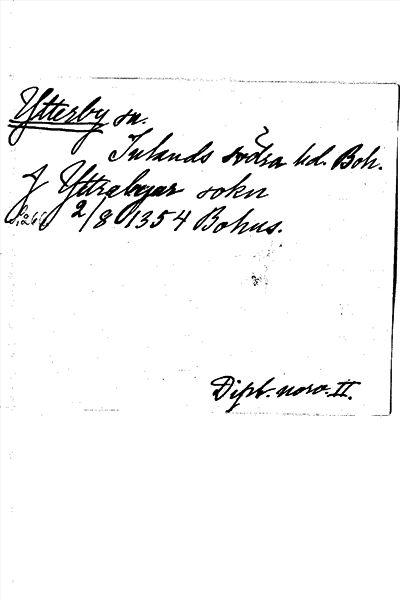 Ytterby sn.
Inlands södra hd. Boh.
J Yttrabyar sokn
s. 266 2/8 1354 Bohus.
Dipl. norv. II.